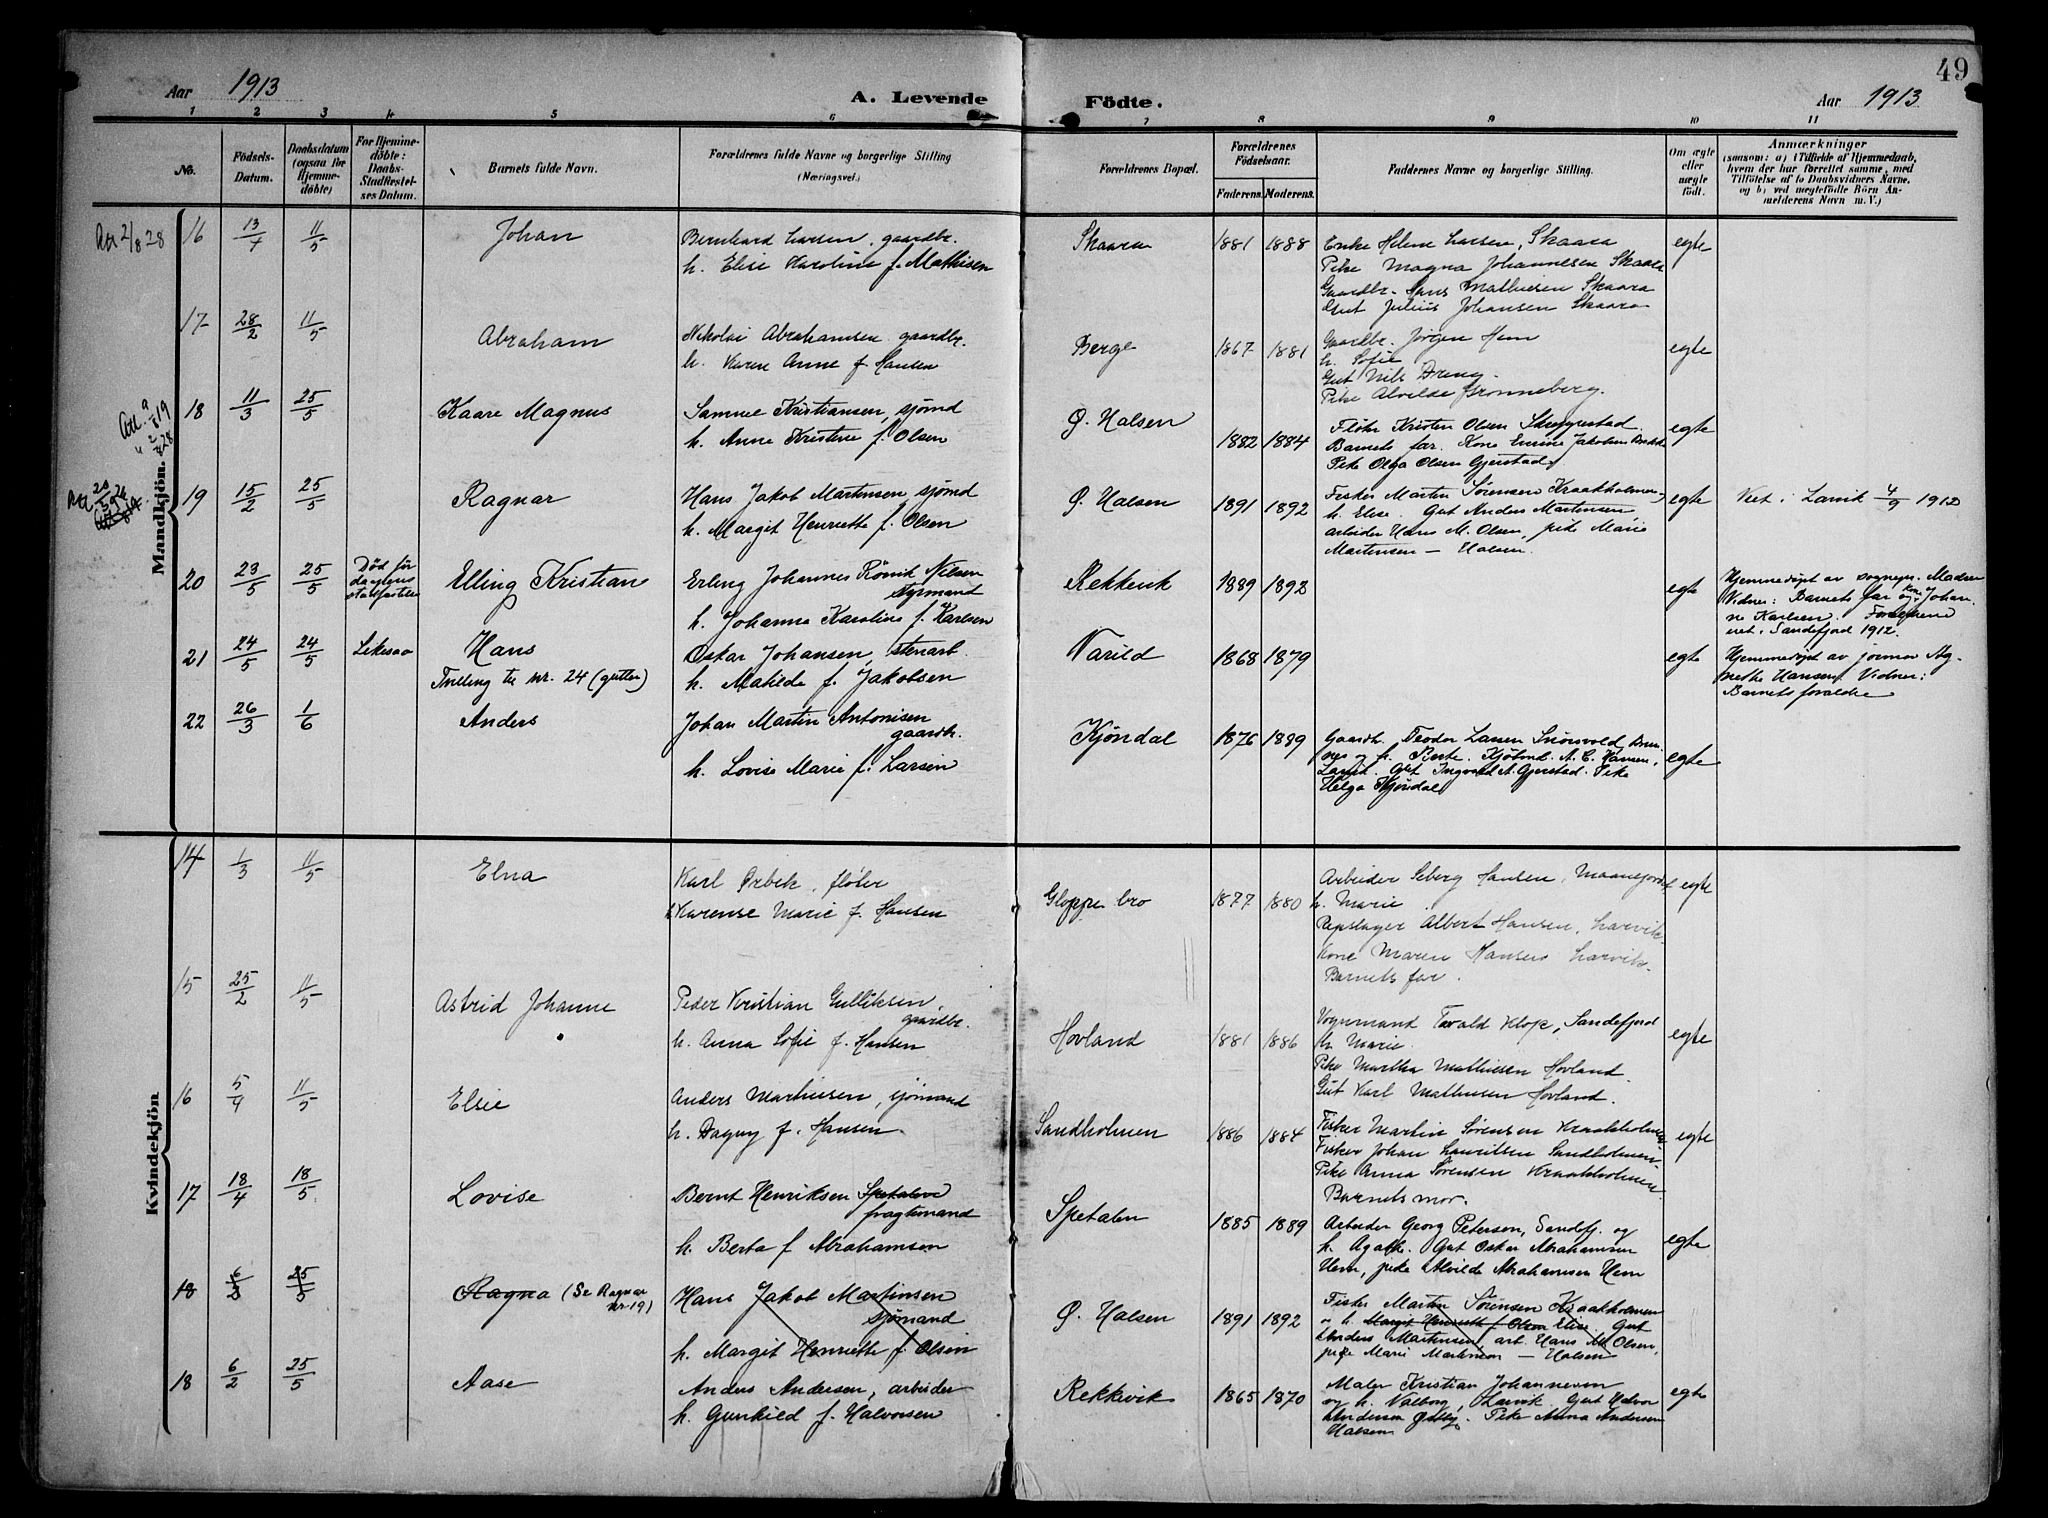 49
Aar 1913
A. Levende Födte.
Aar 1913
1 2 3 4 5 6 7 8 9 10 11
No.
Födsels-Datum.
Daabsdatum (ogsaa for Hjemmedöbte)
For Hjemmedöbte: Daabs-Stadfestelses Datum.
Barnets fulde Navn.
Forældrenes fulde Navne og borgerlige Stilling
(Næringsvei.)
Forældrenes Bopæl.
Forældrenes Födselsaar.
Faderens. Moderens.
Faddernes Navne og borgerlige Stilling.
Om ægte eller uægte födt.
Anmærkninger
(saasom: a) i Tilfælde af Hjemmedaab, hvem der har forrettet samme, med Tilföielse af to Daabsvidners Navne, og b) ved uægtefödte Börn Anmelderens Navn m. V.)
Mandkjön.
16 13/4 11/5 Johan Bernhard Larsen, gaardbr. Skaara 1881 1888 Enke Helene Larsen, Skaara egte
h. Elise Karoline f. Mathisen Pike Magna Johannesen Skaara
Gaardbr. Hans Mathiesen Skaara
Gut Julius Johansen Skaara
17 28/2 11/5 Abraham Nikolai Abrahamsen gaardbr. Berge 1867 1881 Gaardbr. Jörgen Hem egte
h. Karen Anne f. Hansen h. Sofie
Gut Nils
Pike Alvilde Bronneberg.
18 11/3 25/5 Kaare Magnus Samuel Kristiansen, sjömd Ø. Halsen 1882 1884 Fløter Kristen Olsen egte
h. Anne Kristine f. Olsen Barnets far. Kone Emine Jakobsen
Pike Olga Olsen Gjerstad
19 15/2 25/5 Ragnar Hans Jakob Martinsen, sjömd Ø. Halsen 1891 1892 Fisker Martin Sørensen Kraakholmen, egte Viet i Larvik 4/9 1912
h. Margit Henriette f. Olsen h. Elise. Gut Anders Martinsen
arbeider Hans M. Olsen, pike Marie
Martinsen — Halsen.
20 23/5 25/5 Död för daapens stadfestelse Elling Kristian Erling Johannes Rönvik Nilsen styrmand Rekkevik 1889 1892 egte Hjemmedöpt av sognepr. Madsen
h. Johanna Karoline f. Karlsen Vidner: Barnets far og kone Johanne Karlsen. Foreldrene viet i Sandefjord 1912.
21 24/5 24/5 Likesaa Hans Oskar Johansen, stenarb. Varild 1868 1879 egte Hjemmedöpt av jormor Agnethe Hansen. Vidner:
Tvilling til nr. 24 (gutter) h. Matilde f. Jakobsen Barnets foreldre
22 26/3 1/6 Anders Johan Martin Antonisen gaardb. Kjöndal 1876 1889 Gaardb. Teodor Larsen egte
h. Lovise Marie f. Larsen og h. Berte. Kjöbmd. A. C. Hansen,
Larvik. Gut Ingvald A. Gjerstad. Pike
Helga Kjöndal
Kvindekjön
14 1/3 11/5 Elna Karl Ørbek, fløter Gloppe bro 1877 1880 Arbeider Seberg Hansen, egte
h. Karense Marie f. Hansen h. Marie
Repslager Albert Hansen, Larvik
Kone Maren Hansen Larvik
Barnets far.
15 25/2 11/5 Astrid Johanne Peder Kristian Gulliksen, gaardbr. Hovland 1881 1886 Vognmand Tovald Klop, Sandefjord egte
h. Anna Sofie f. Hansen h. Marie.
Pike Martha Mathisen Hovland.
Gut Karl Mathisen Hovland.
16 5/4 11/5 Elsie Anders Martinsen, sjömand Sandholmen 1886 1884 Fisker Martin Sørensen Kraakholmen egte
h. Dagny f. Hansen Fisker Johan Lauritsen Sandholmen
Pike Anna Sørensen Kraakholmen
Barnets mor.
17 18/4 18/5 Lovise Bernt Henriksen Spetalen fragtemand Spetalen 1885 1889 Arbeider Georg Petersen, Sandefj. og egte
h. Berta f Abrahamsen h. Agathe. Gut Oskar Abrahamsen
Hem, pike Alvilde Abrahamsen Hem
18 25/5 Ragna (Se Ragnar nr. 19) Hans Jakob Martinsen sjömand Ø. Halsen 1891 1892 Fisker Martin Sørensen Kraakholmen
h. Margit Henriette f. Olsen og h. Margit Henriette f. Olsen Elise. Gut
Anders Martinsen, arb. Hans M. Olsen,
pike Marie Martinsen — Halsen
18 6/2 25/5 Aase Anders Andersen, arbeider Rekkevik 1865 1870 Maler Kristian Johannesen egte
h. Gunhild f. Halvorsen og h. Valborg, Larvik. Gut Halvor
Andersen Østby. Pike Anna Andersen
Halsen